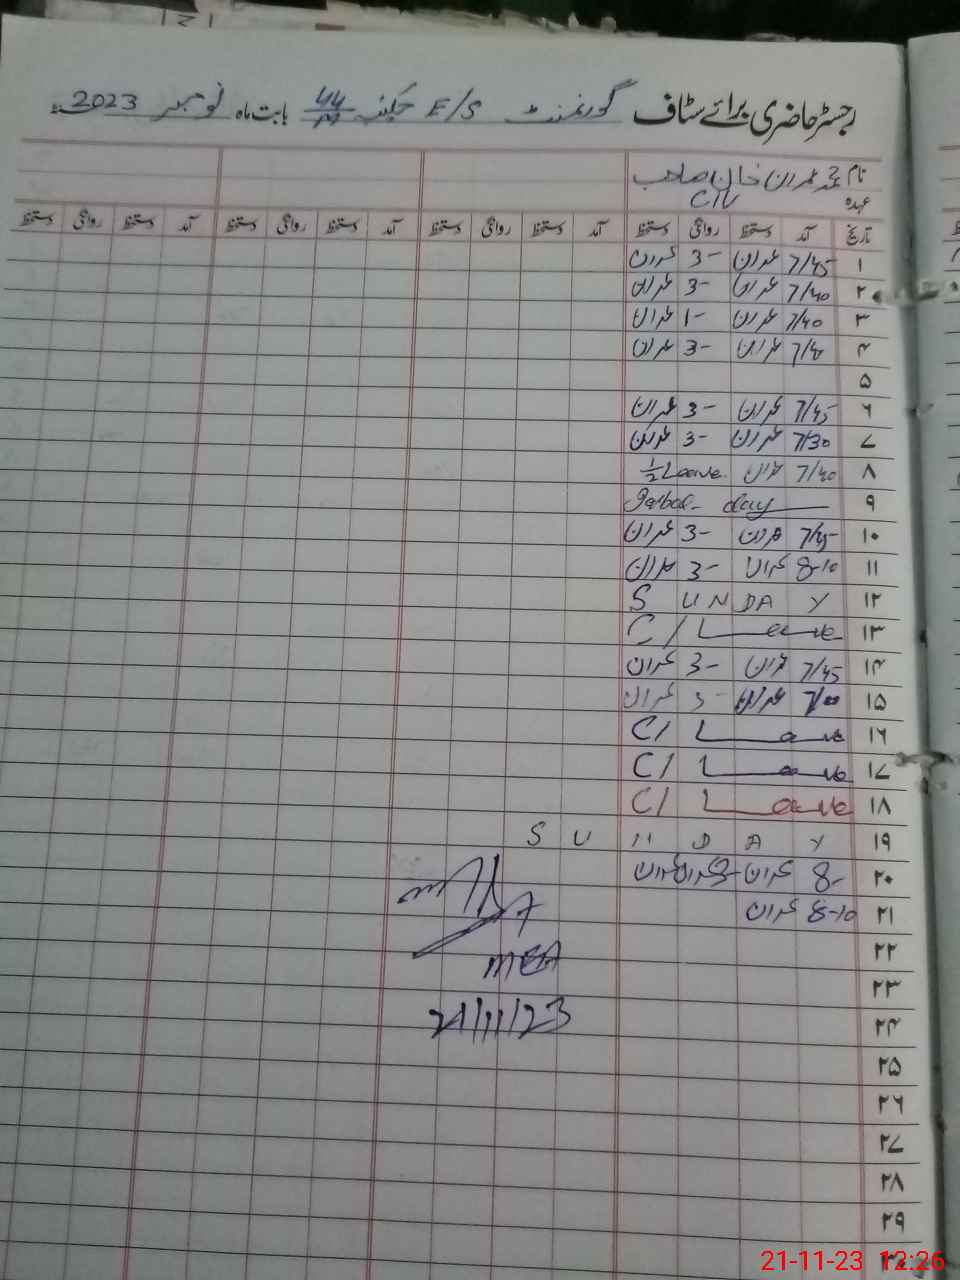 رجسٹر حاضری برائے سٹاف گورنمنٹ E/S چکنمبر 44/M بابت ماہ نومبر 2023ء
نام محمد عمران خان صاحب
عہدہ CIV
تاریخ آمد دستخط روانگی دستخط آمد دستخط روانگی دستخط آمد دستخط روانگی دستخط آمد دستخط روانگی دستخط
۱ 7/45 عمران 3- عمران
۲ 7/40 عمران 3- عمران
۳ 7/40 عمران 1- عمران
۴ عمران 3- عمران
۵
۶ 7/45 عمران 3- عمران
۷ 7/30 عمران 3- عمران
۸ 7/40 عمران 1/2 Leave
۹ Iqbal day
۱۰ 7/45 عمران 3- عمران
۱۱ 8-10 عمران 3- عمران
۱۲ SUNDAY
۱۳ C/Leave
۱۴ 7/45 عمران 3- عمران
۱۵ عمران 3- عمران
۱۶ C/Leave
۱۷ C/Leave
۱۸ C/Leave
۱۹ SUNDAY
۲۰ 8- عمران 3- عمران عمران
۲۱ 8-10 عمران
۲۲
۲۳
۲۴
۲۵
۲۶
۲۷
۲۸
۲۹
۳۰
MEA
21/11/23
21-11-23 12:26